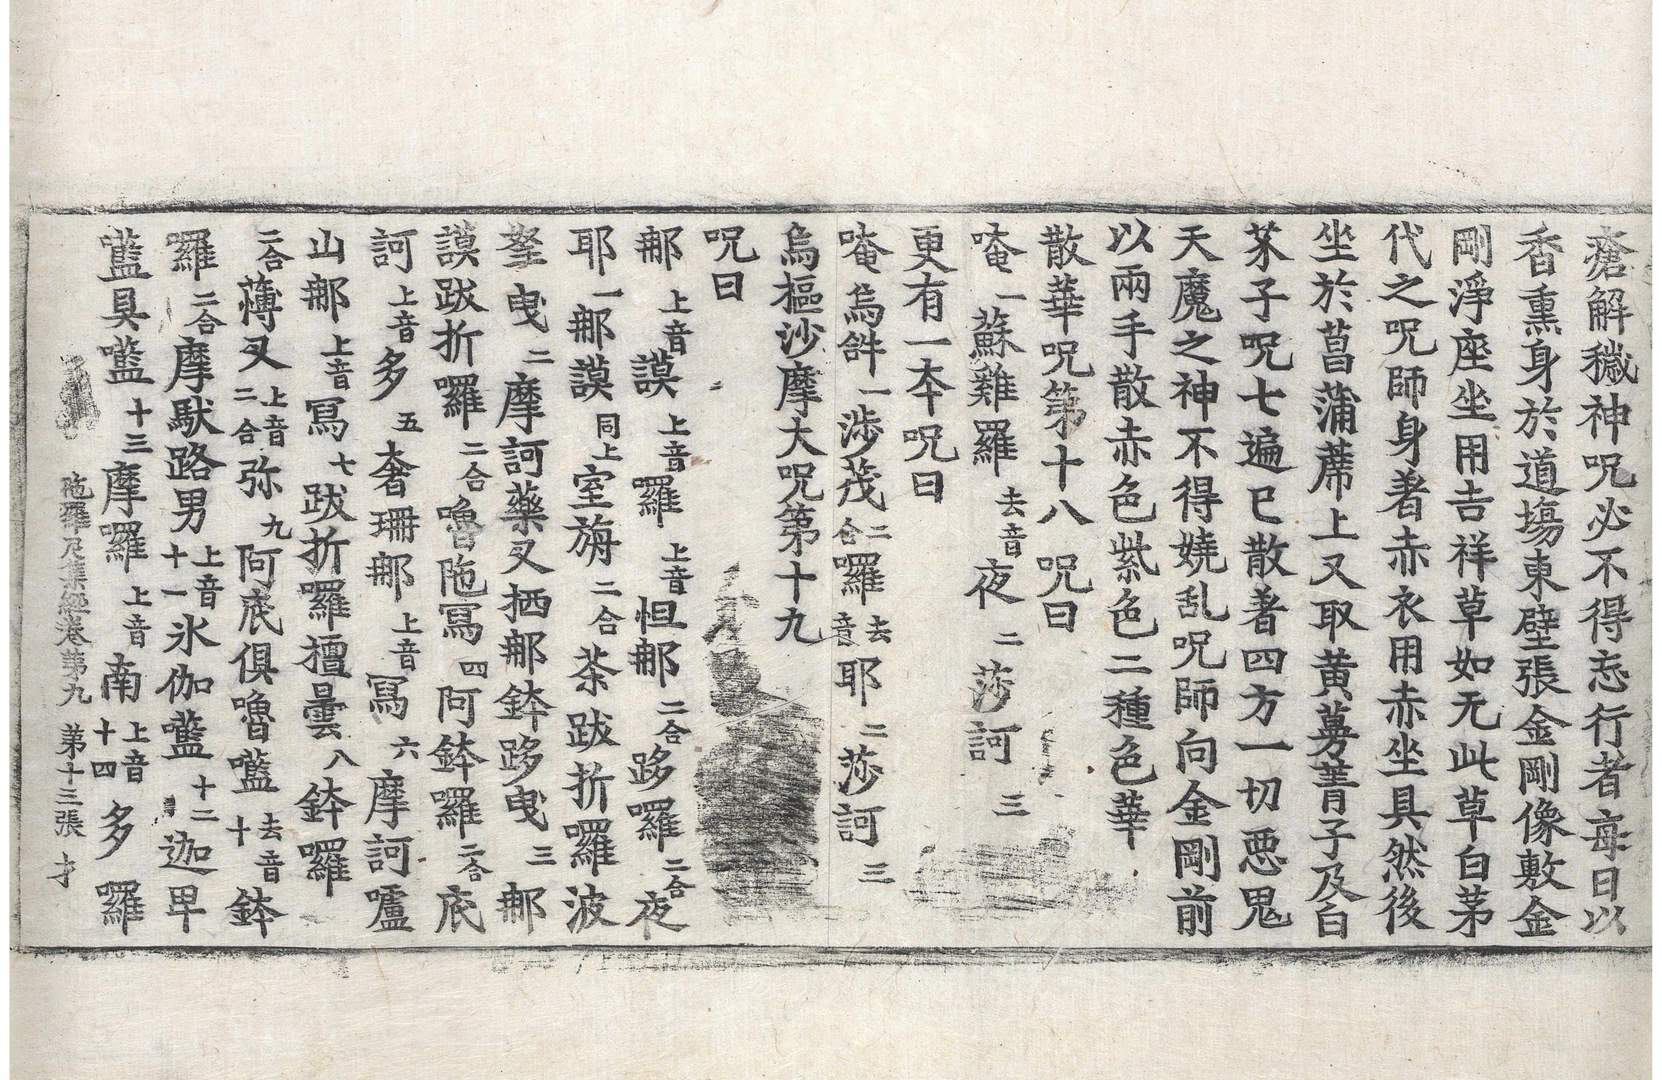 瘡解穢神呪必不得忘行者每日以
香熏身於道場東壁張金剛像敷金
剛淨座坐用吉祥草如无此草白茅
代之呪師身著赤衣用赤坐具然後
坐於菖蒲蓆上又取黄蔓菁子及白
芥子呪七遍已散著四方一切惡鬼
天魔之神不得嬈乱呪師向金剛前
以兩手散赤色紫色二種色華
散華呪第十八 呪曰
唵一蘇雞羅去音夜二莎訶三
更有一本呪曰
唵烏𤙖一渉茂二合囉去音耶二莎訶三
烏樞沙摩大呪第十九
呪曰
那上音謨上音囉上音怛那二合跢囉二合夜
耶一那謨同上室旃二合茶跋折囉波
拏曳二摩訶藥叉栖那鉢跢曳三那
謨跋折囉二合嚕陁冩四阿鉢囉二合底
訶上音多五奢珊那上音冩六摩訶嚧
山那上音冩七跋折囉擅曇八鉢囉
二合薄叉上音二合弥九阿底俱嚕㘕去音十鉢
囉二合摩馱路男上音十一氷伽㘕十二迦卑
㘕具㘕十三摩囉上音南上音十四多囉
陁羅尼集經卷第九 第十三張 才